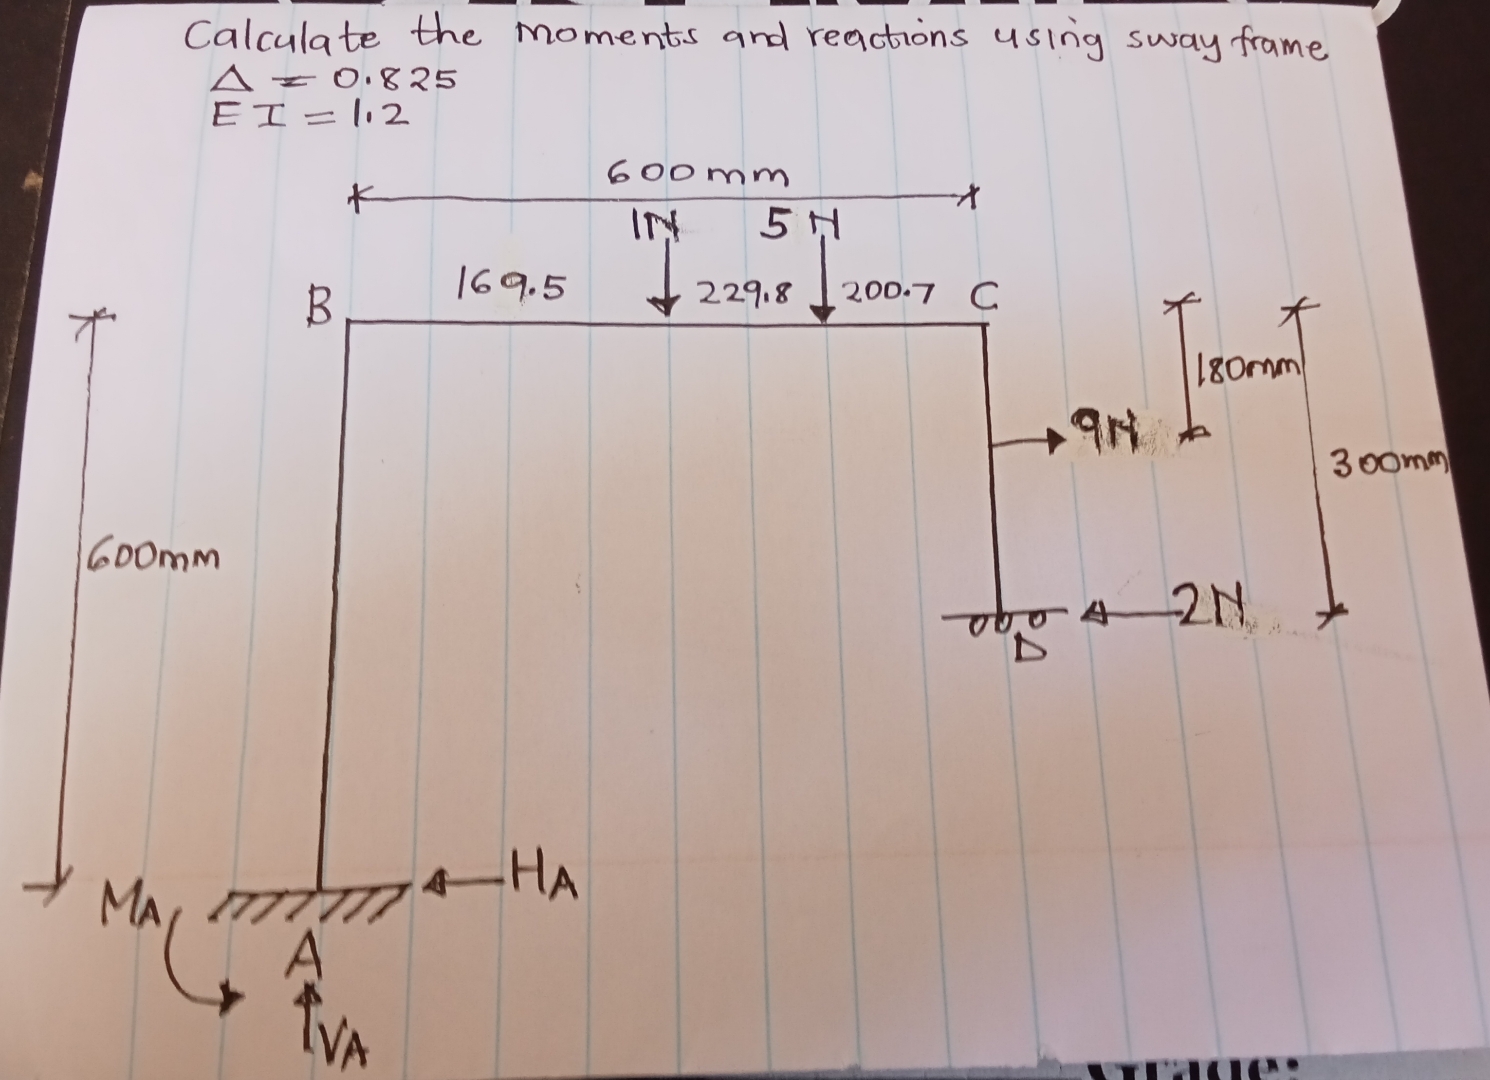 Calculate the moments and reactions using sway frame
Δ = 0.825
EI = 1.2
600mm
1N 5N
169.5 229.8 200.7
B C
180mm
9N
300mm
600mm
2N
D
HA
MA
A
VA